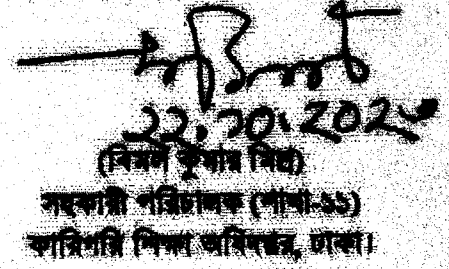 ২২.১০.২০২৩
(বিমল কুমার মিশ্র)
সহকারী পরিচালক (শাখা-১১)
কারিগরি শিক্ষা অধিদপ্তর, ঢাকা।